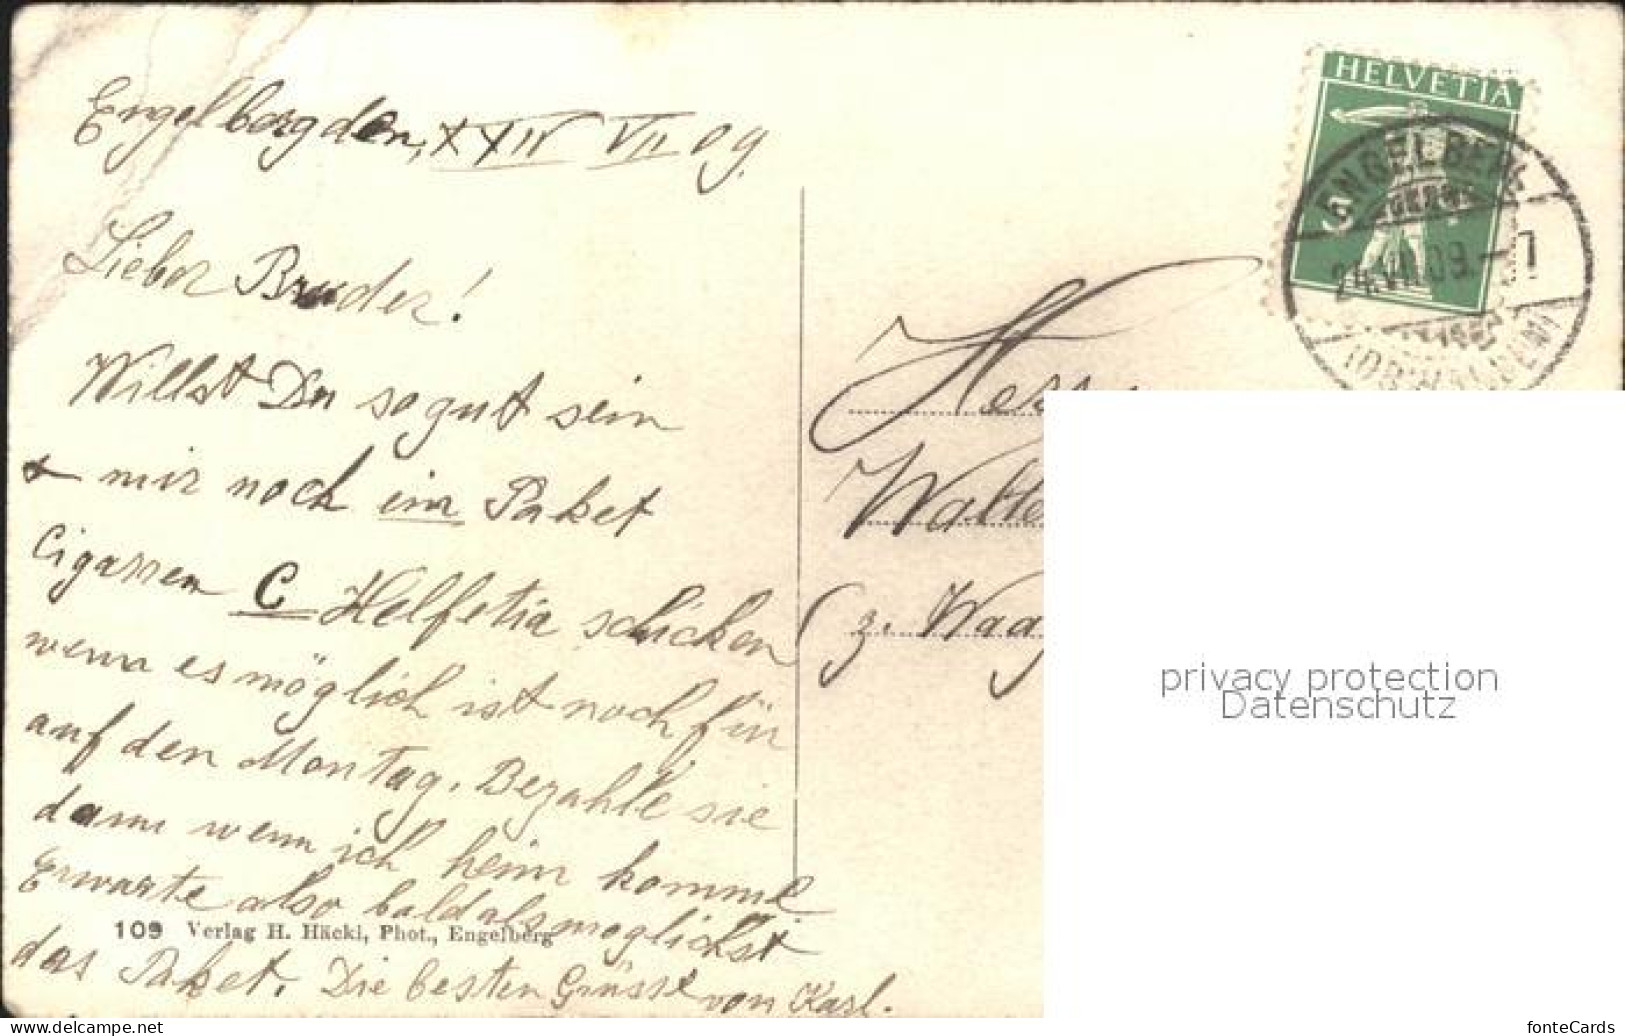 Engelberg den, XXIV VII 09.
Lieber Bruder!
Willst Du so gut sein
+ mir noch ein Paket
Cigarren C Helfetia schicken
wenn es möglich ist noch für
auf den Montag. Bezahle sie
dann wenn ich heim komme
Erwarte also bald als moglichst
das Paket. Die besten Grüsse von Karl.
109 Verlag H. Häcki, Phot., Engelberg
HELVETIA
5
ENGELBERG
24.VII.09.-7
(OBWALDEN)
Herr
Walte
(z. Waag
privacy protection
Datenschutz
www.delcampe.net
fonteCards